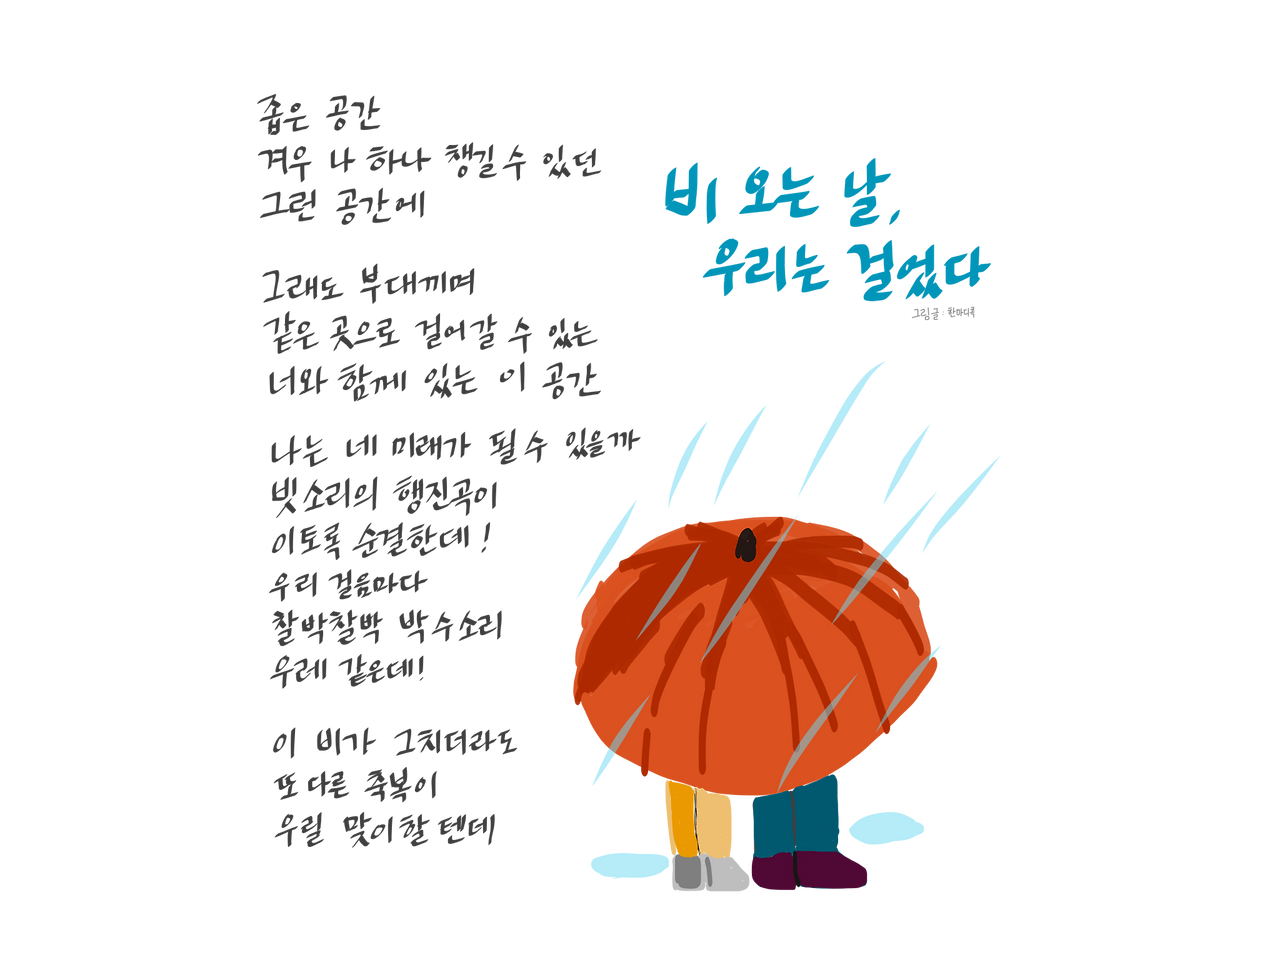 비 오는 날,
우리는 걸었다
그림글 : 한마디록
좁은 공간
겨우 나 하나 챙길 수 있던
그런 공간에
그래도 부대끼며
같은 곳으로 걸어갈 수 있는
너와 함께 있는 이 공간
나는 네 미래가 될 수 있을까
빗소리의 행진곡이
이토록 순결한데!
우리 걸음마다
찰박찰박 박수소리
우레 같은데!
이 비가 그치더라도
또 다른 축복이
우릴 맞이할 텐데